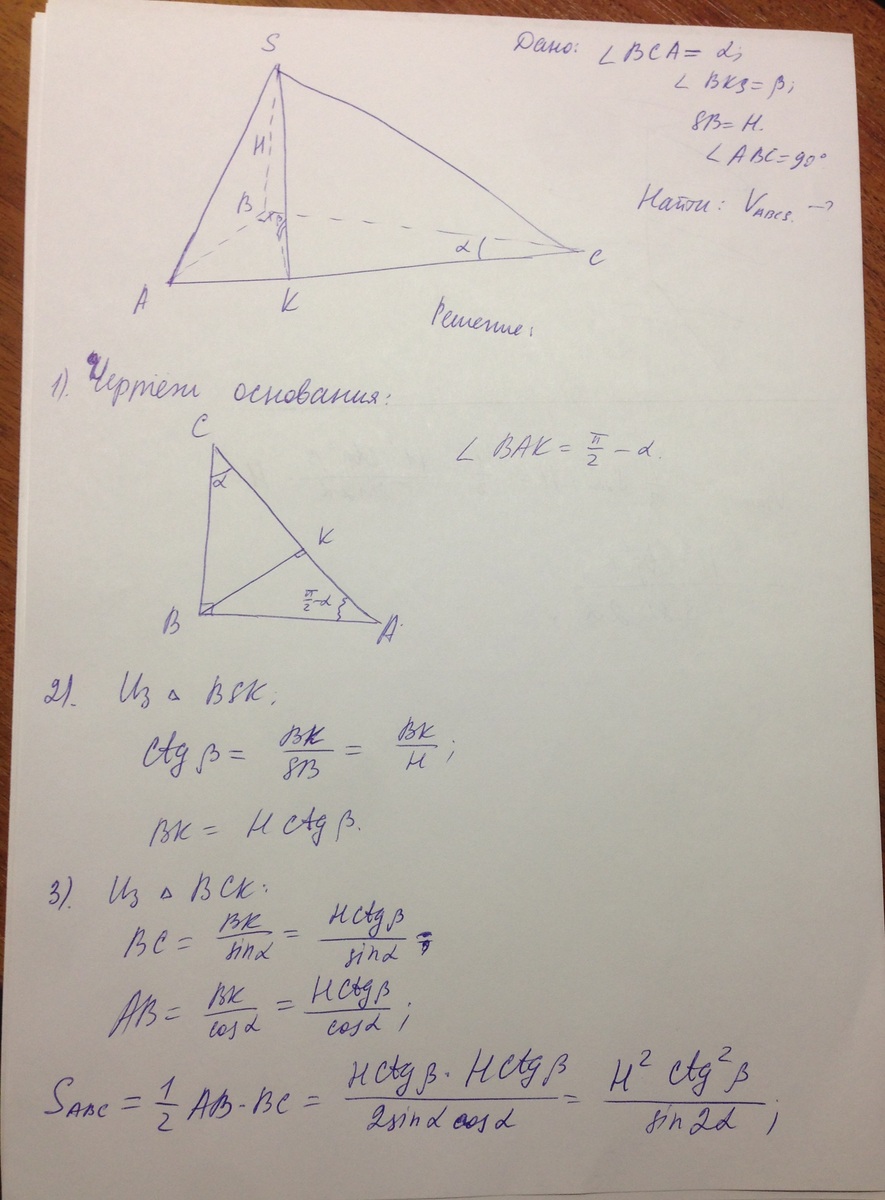 S
Дано: ∠BCA = α;
∠BKS = β;
SB = H.
∠ABC = 90°
Найти: V_ABCS. →
H
B
β
α
C
A
K
Решение:
1). Чертеж основания:
C
α
∠BAK = π/2 − α.
K
π/2 − α
B
A
2). Из △ BSK:
ctg β = BK/SB = BK/H;
BK = H ctg β.
3). Из △ BCK:
BC = BK/sin α = H ctg β/sin α;
AB = BK/cos α = H ctg β/cos α;
S_ABC = 1/2 AB · BC = H ctg β · H ctg β/2 sin α cos α = H² ctg² β/sin 2α;